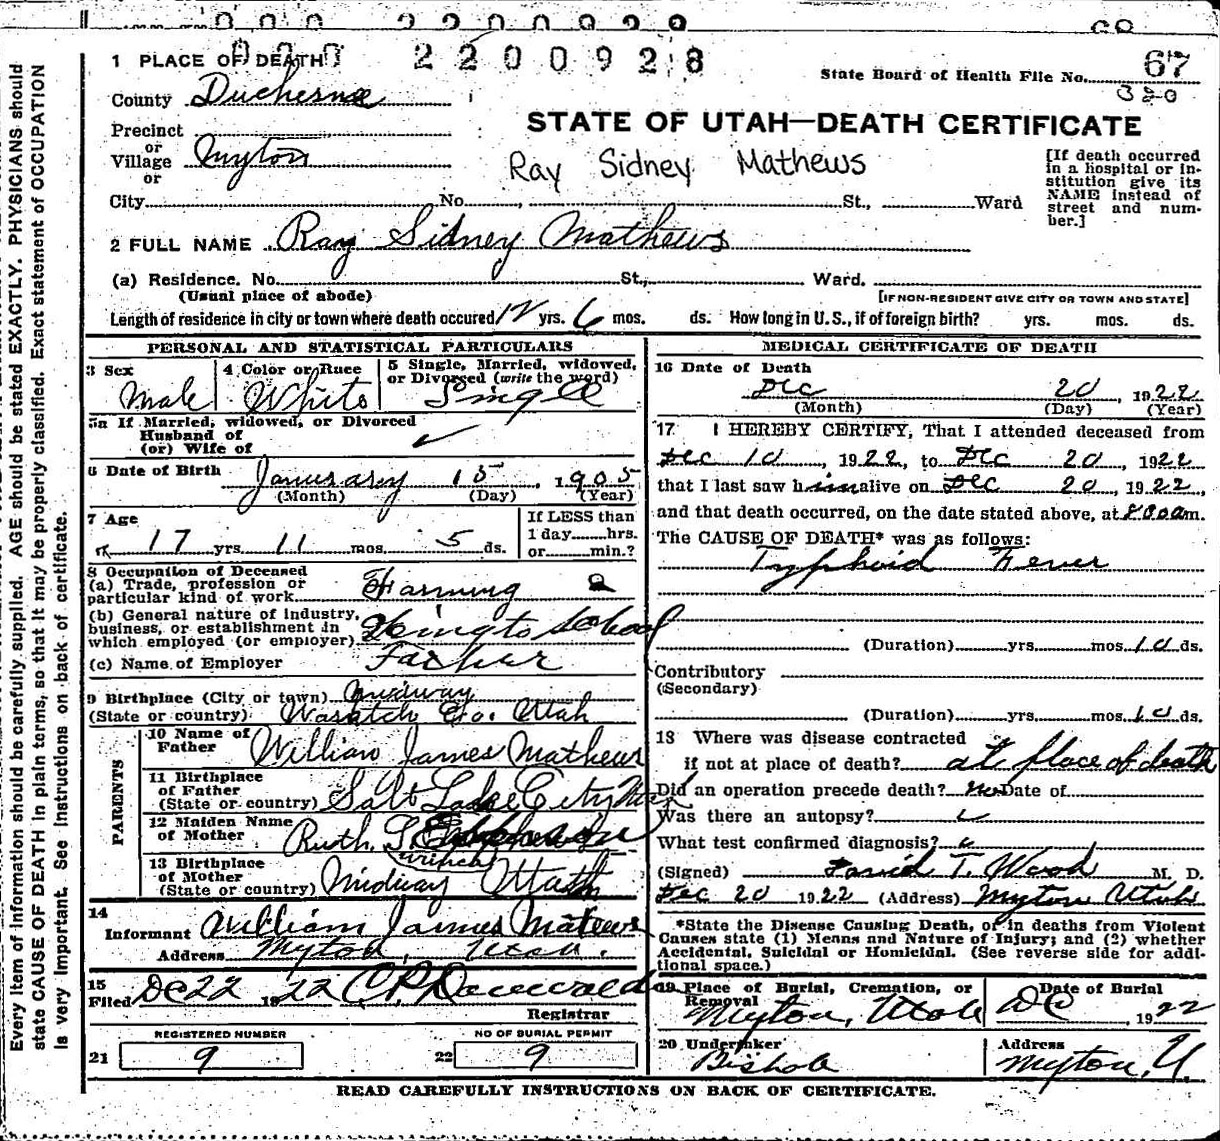 0 0 0 2 2 0 0 9 2 9
68
1 PLACE OF DEATH 0 0 0 2 2 0 0 9 2 8
State Board of Health File No. 67
380
County Duchesne
STATE OF UTAH—DEATH CERTIFICATE
Precinct
or
Village Myton
or
Ray Sidney Mathews
[If death occurred in a hospital or institution give its NAME instead of street and number.]
City No. St., Ward
2 FULL NAME Ray Sidney Mathews
(a) Residence. No. St., Ward.
(Usual place of abode) [IF NON-RESIDENT GIVE CITY OR TOWN AND STATE]
Length of residence in city or town where death occured 12 yrs. 6 mos. ds. How long in U. S., if of foreign birth? yrs. mos. ds.
PERSONAL AND STATISTICAL PARTICULARS
3 Sex Male
4 Color or Race White
5 Single, Married, widowed, or Divorced (write the word) Single
5a If Married, widowed, or Divorced
Husband of
(or) Wife of
6 Date of Birth January 15, 1905
(Month) (Day) (Year)
7 Age 17 yrs. 11 mos. 5 ds.
If LESS than
1 day hrs.
or min.?
8 Occupation of Deceased
(a) Trade, profession or
particular kind of work Farming
(b) General nature of industry,
business, or establishment in
which employed (or employer) Going to school
(c) Name of Employer Father
9 Birthplace (City or town) Midway
(State or country) Wasatch Co. Utah
PARENTS
10 Name of
Father William James Mathews
11 Birthplace
of Father
(State or country) Salt Lake City Utah
12 Maiden Name
of Mother Ruth
13 Birthplace
of Mother
(State or country) Midway Utah
14
Informant William James Mathews
Address Myton, Utah.
15
Filed Dec 22 1922 C.P.
Registrar
REGISTERED NUMBER NO OF BURIAL PERMIT
21 9 22 9
MEDICAL CERTIFICATE OF DEATH
16 Date of Death
Dec 20, 1922
(Month) (Day) (Year)
17 I HEREBY CERTIFY, That I attended deceased from
Dec 10, 1922, to Dec 20, 1922
that I last saw him alive on Dec 20, 1922,
and that death occurred, on the date stated above, at 8:00 a m.
The CAUSE OF DEATH* was as follows:
Typhoid Fever
(Duration) yrs. mos. 10 ds.
Contributory
(Secondary)
(Duration) yrs. mos. 10 ds.
18 Where was disease contracted
if not at place of death? at place of death
Did an operation precede death? no Date of
Was there an autopsy?
What test confirmed diagnosis?
(Signed) David T. Wood M. D.
Dec 20 1922 (Address) Myton Utah
*State the Disease Causing Death, or in deaths from Violent
Causes state (1) Means and Nature of Injury; and (2) whether
Accidental, Suicidal or Homicidal. (See reverse side for addi-
tional space.)
19 Place of Burial, Cremation, or
Removal
Myton, Utah
Date of Burial
Dec, 1922
20 Undertaker
Bishop
Address
Myton, U.
READ CAREFULLY INSTRUCTIONS ON BACK OF CERTIFICATE.
Every item of information should be carefully supplied. AGE should be stated EXACTLY. PHYSICIANS should
state CAUSE OF DEATH in plain terms, so that it may be properly classified. Exact statement of OCCUPATION
is very important. See instructions on back of certificate.